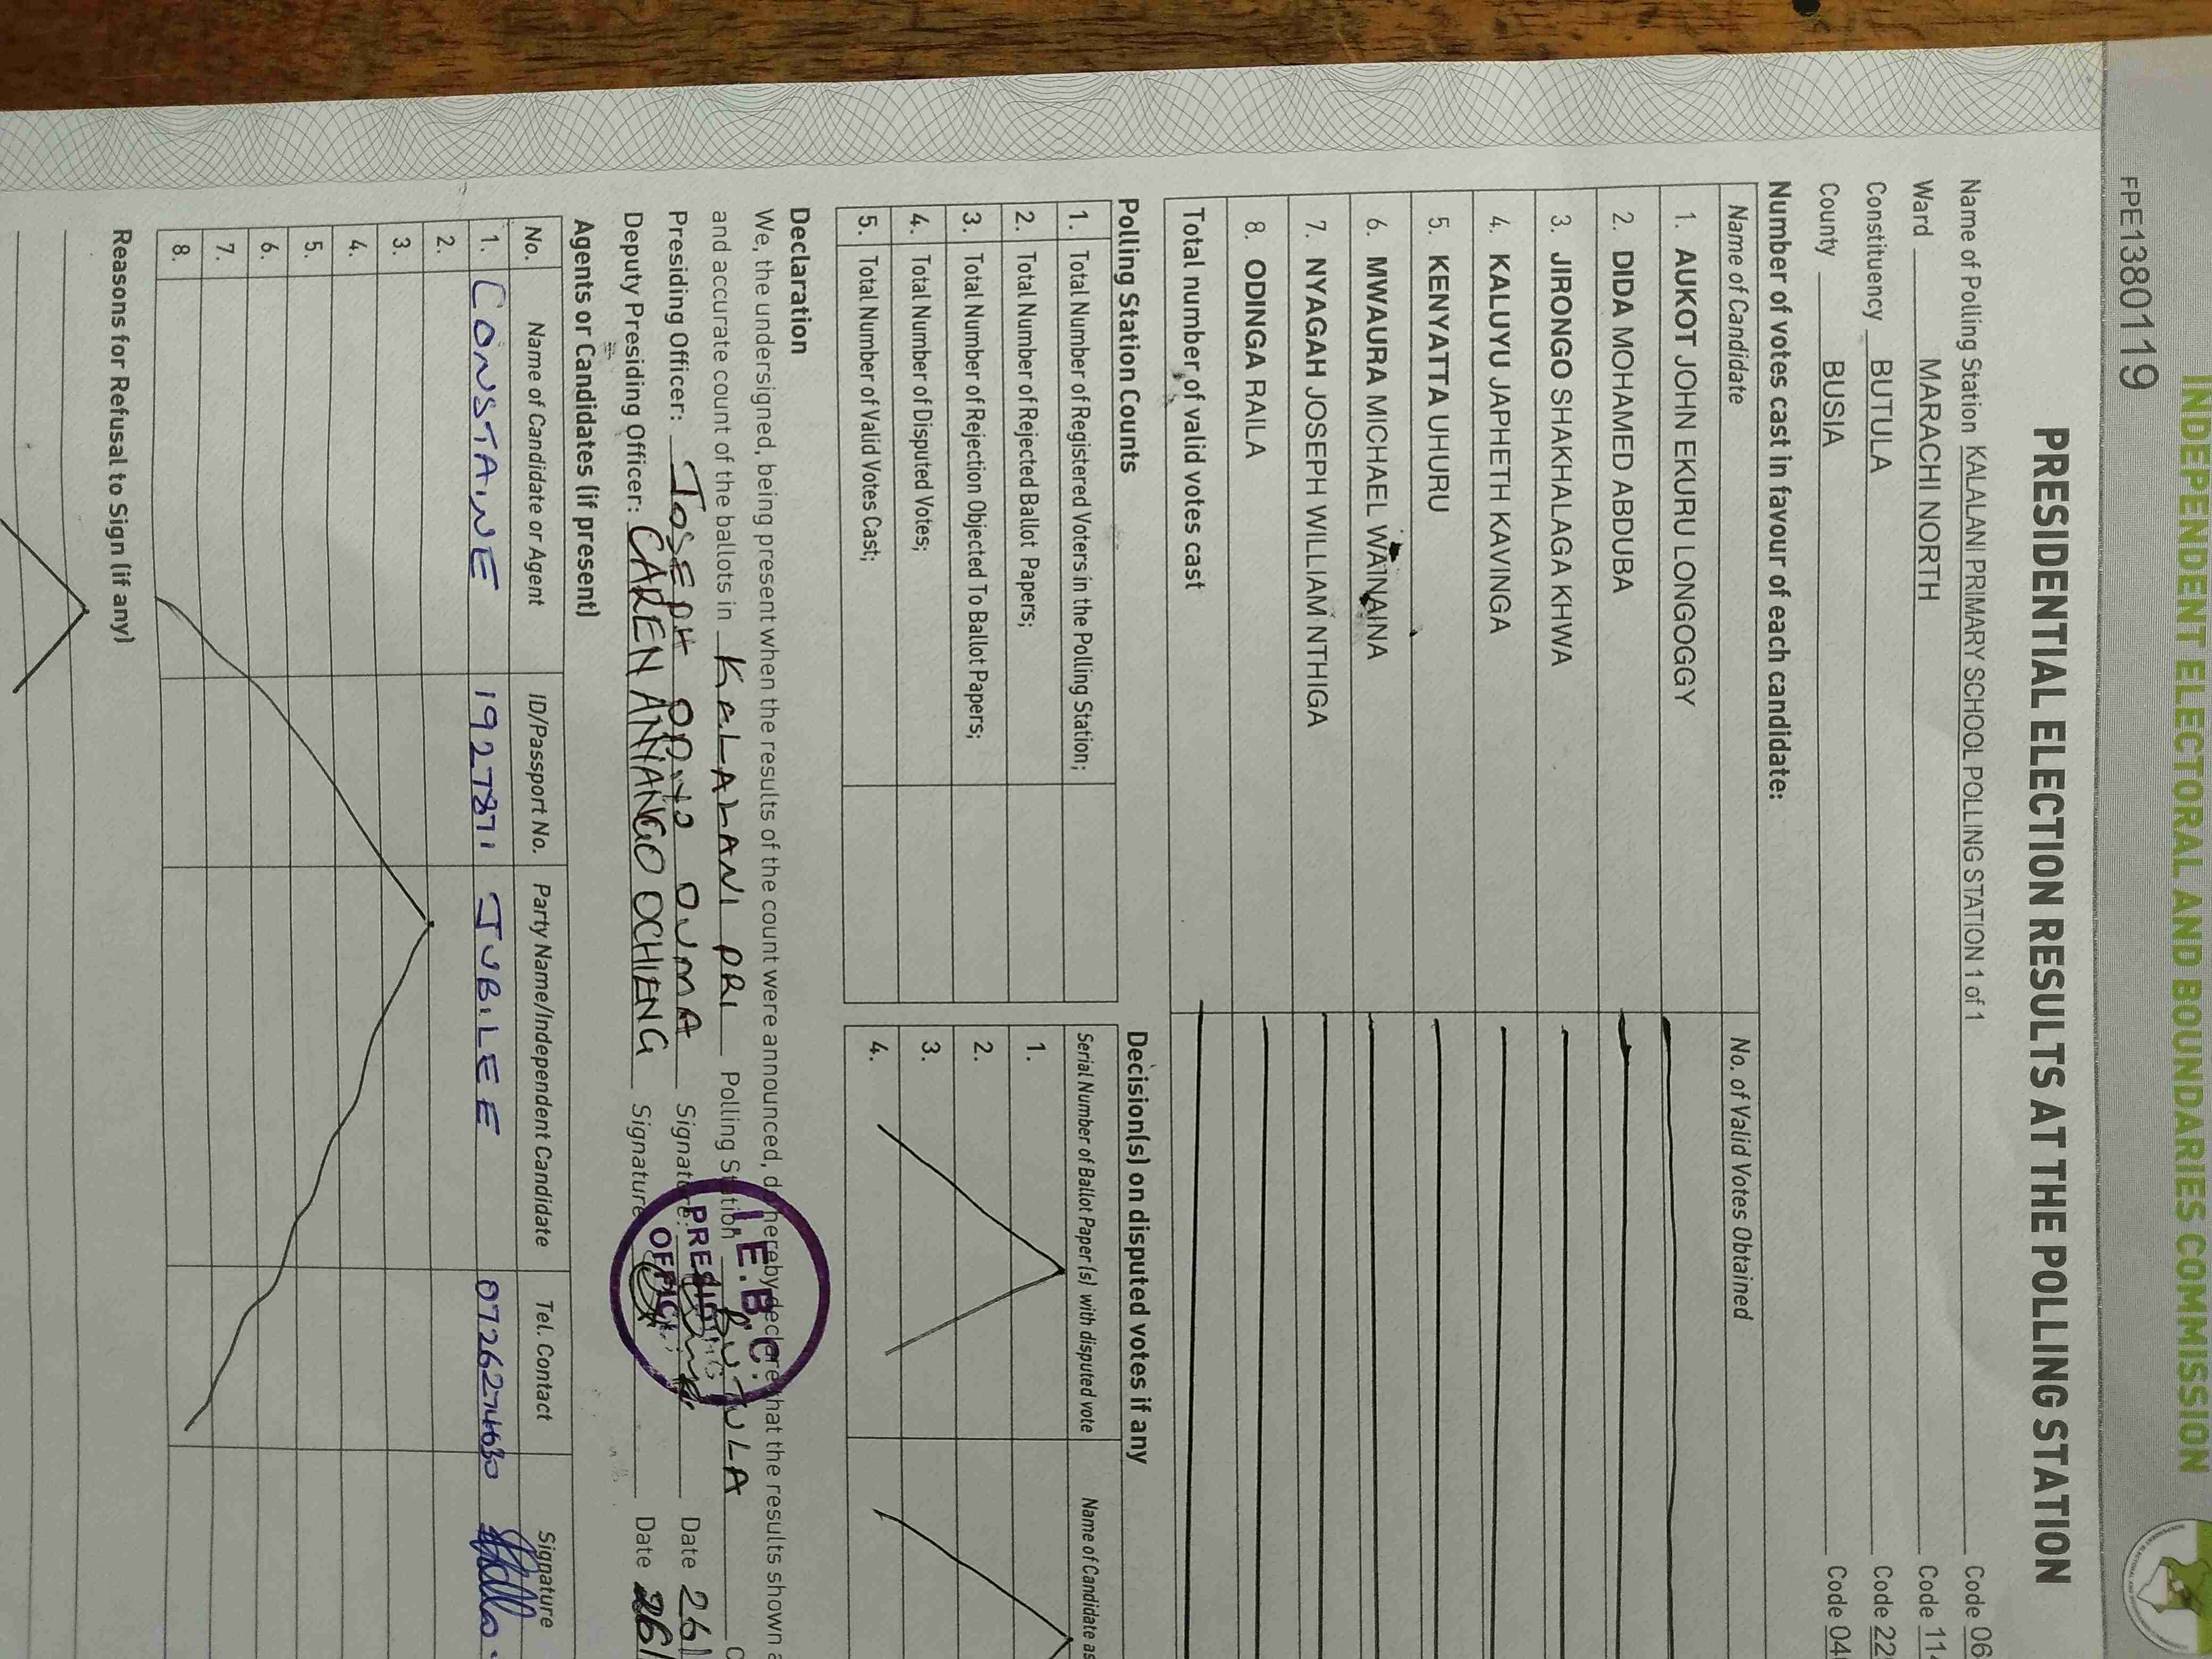 INDEPENDENT ELECTORAL AND BOUNDARIES COMMISSION
FPE1380119
PRESIDENTIAL ELECTION RESULTS AT THE POLLING STATION
Name of Polling Station KALALANI PRIMARY SCHOOL POLLING STATION 1 of 1 Code 06
Ward MARACHI NORTH Code 11
Constituency BUTULA Code 22
County BUSIA Code 04
Number of votes cast in favour of each candidate:
Name of Candidate No. of Valid Votes Obtained
1. AUKOT JOHN EKURU LONGOGGY
2. DIDA MOHAMED ABDUBA
3. JIRONGO SHAKHALAGA KHWA
4. KALUYU JAPHETH KAVINGA
5. KENYATTA UHURU
6. MWAURA MICHAEL WAINAINA
7. NYAGAH JOSEPH WILLIAM NTHIGA
8. ODINGA RAILA
Total number of valid votes cast
Polling Station Counts
1. Total Number of Registered Voters in the Polling Station;
2. Total Number of Rejected Ballot Papers;
3. Total Number of Rejection Objected To Ballot Papers;
4. Total Number of Disputed Votes;
5. Total Number of Valid Votes Cast;
Decision(s) on disputed votes if any
Serial Number of Ballot Paper(s) with disputed vote Name of Candidate as
1.
2.
3.
4.
Declaration
We, the undersigned, being present when the results of the count were announced, do hereby declare that the results shown a
and accurate count of the ballots in KALALANI PRI Polling Station BUTULA C
Presiding Officer: JOSEPH OPIYO OUMA Signature: Date 26/
Deputy Presiding Officer: CAREN ANYANGO OCHIENG Signature Date 26/
I.E.B.C.
PRESIDING
OFFICER
Agents or Candidates (if present)
No. Name of Candidate or Agent ID/Passport No. Party Name/Independent Candidate Tel. Contact Signature
1. CONSTAINE 19278711 JUBILEE 0726274630
2.
3.
4.
5.
6.
7.
8.
Reasons for Refusal to Sign (if any)